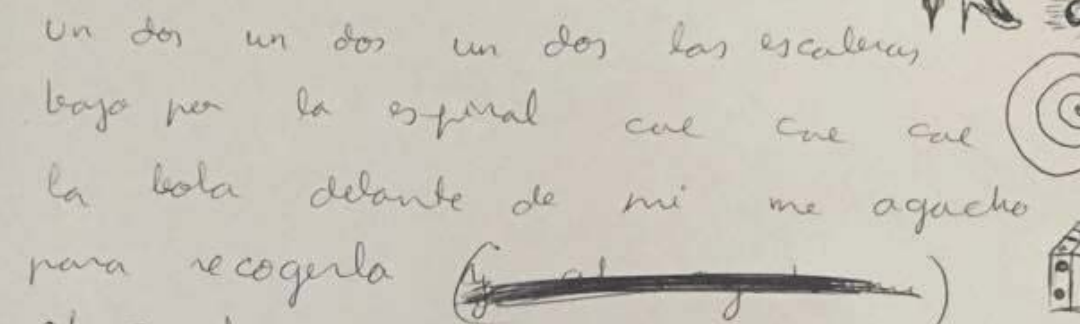 un dos un dos un dos las escaleras
bajo por la espiral cae cae cae
la bola delante de mi me agacho
para recogerla